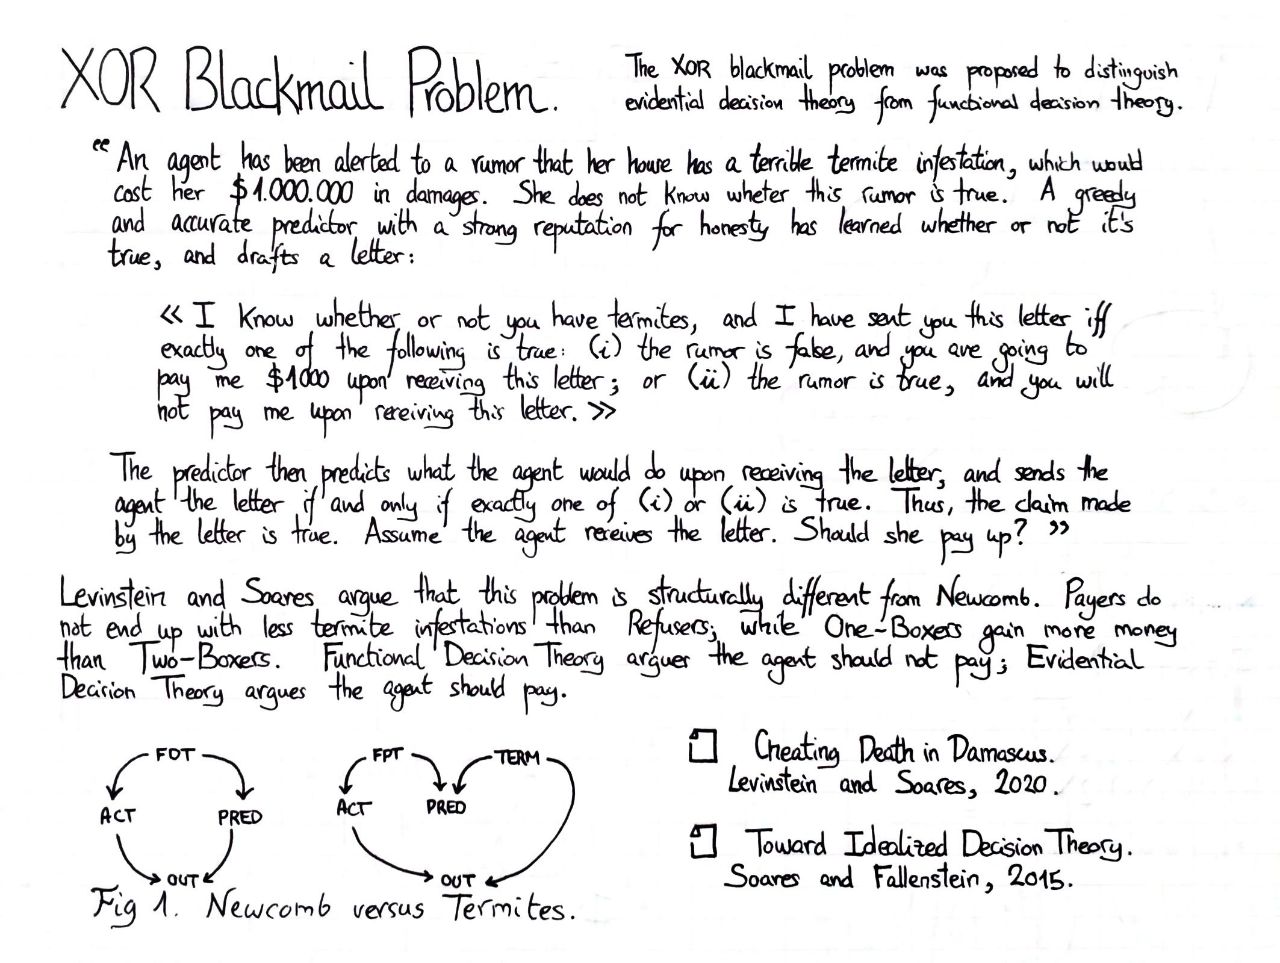 XOR Blackmail Problem.
The XOR blackmail problem was proposed to distinguish
evidential decision theory from functional decision theory.
“ An agent has been alerted to a rumor that her house has a terrible termite infestation, which would
cost her $1.000.000 in damages. She does not know wheter this rumor is true. A greedy
and accurate predictor with a strong reputation for honesty has learned whether or not it's
true, and drafts a letter:
« I know whether or not you have termites, and I have sent you this letter iff
exactly one of the following is true: (i) the rumor is false, and you are going to
pay me $1000 upon receiving this letter; or (ii) the rumor is true, and you will
not pay me upon receiving this letter. »
The predictor then predicts what the agent would do upon receiving the letter, and sends the
agent the letter if and only if exactly one of (i) or (ii) is true. Thus, the claim made
by the letter is true. Assume the agent receives the letter. Should she pay up? ”
Levinstein and Soares argue that this problem is structurally different from Newcomb. Payers do
not end up with less termite infestations than Refusers; while One-Boxers gain more money
than Two-Boxers. Functional Decision Theory argues the agent should not pay; Evidential
Decision Theory argues the agent should pay.
FDT
ACT PRED
OUT
FDT TERM
ACT PRED
OUT
Fig 1. Newcomb versus Termites.
Cheating Death in Damascus.
Levinstein and Soares, 2020.
Toward Idealized Decision Theory.
Soares and Fallenstein, 2015.